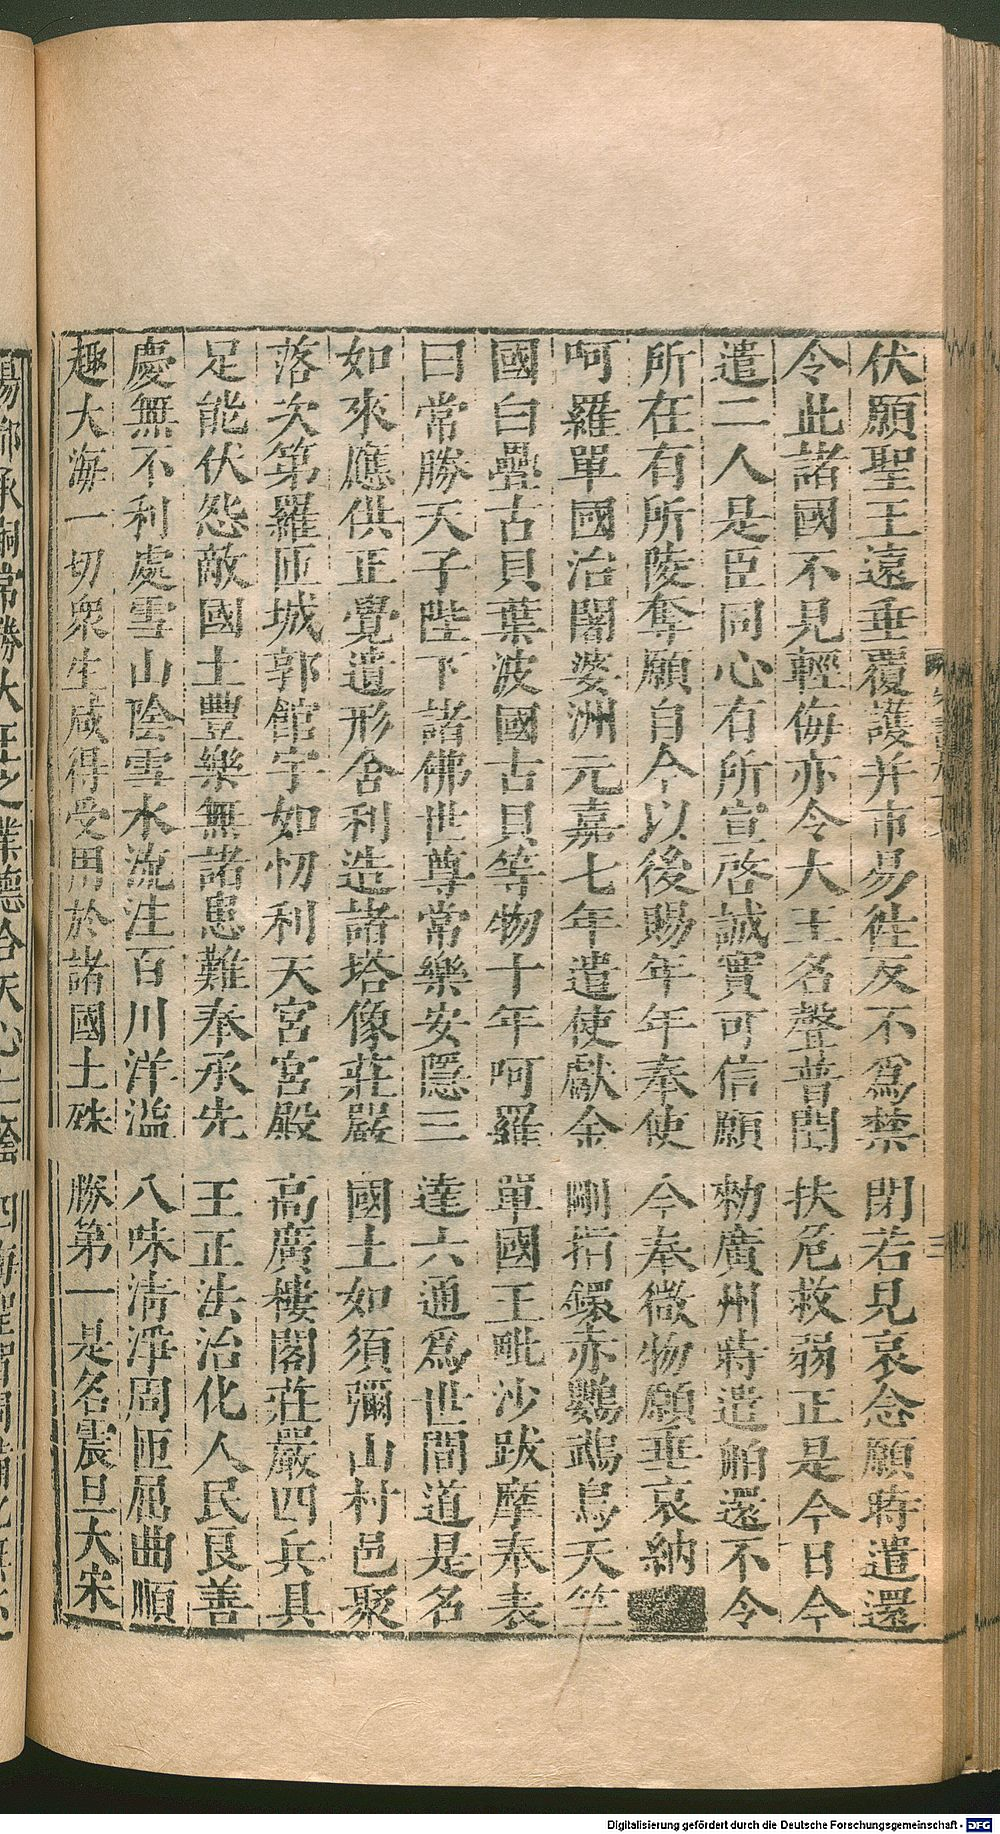 伏願聖王遠垂覆護并市易徃反不爲禁閉若見哀念願時遣還
令此諸國不見輕侮亦令大王名聲普聞扶危救弱正是今日今
遣二人是臣同心有所宣啓誠實可信願勑廣州時遣舶還不令
所在有所陵奪願自今以後賜年年奉使今奉微物願垂哀納
呵羅單國治闍婆洲元嘉七年遣使獻金剛指鐶赤鸚鵡鳥天竺
國白疊古貝葉波國古貝等物十年呵羅單國王毗沙跋摩奉表
曰常勝天子陛下諸佛世尊常樂安隱三達六通爲世間道是名
如來應供正覺遺形舍利造諸塔像莊嚴國土如須彌山村邑聚
落次第羅匝城郭館宇如忉利天宮宮殿高廣樓閣莊嚴四兵具
足能伏怨敵國土豐樂無諸患難奉承先王正法治化人民良善
慶無不利處雪山陰雪水流注百川洋溢八味清淨周匝屈曲順
趣大海一切衆生咸得受用於諸國土殊勝第一是名震旦大宋
揚都承嗣常勝大王之業德合天心仁廕四海聖智周備化無不
三
Digitalisierung gefördert durch die Deutsche Forschungsgemeinschaft - DFG